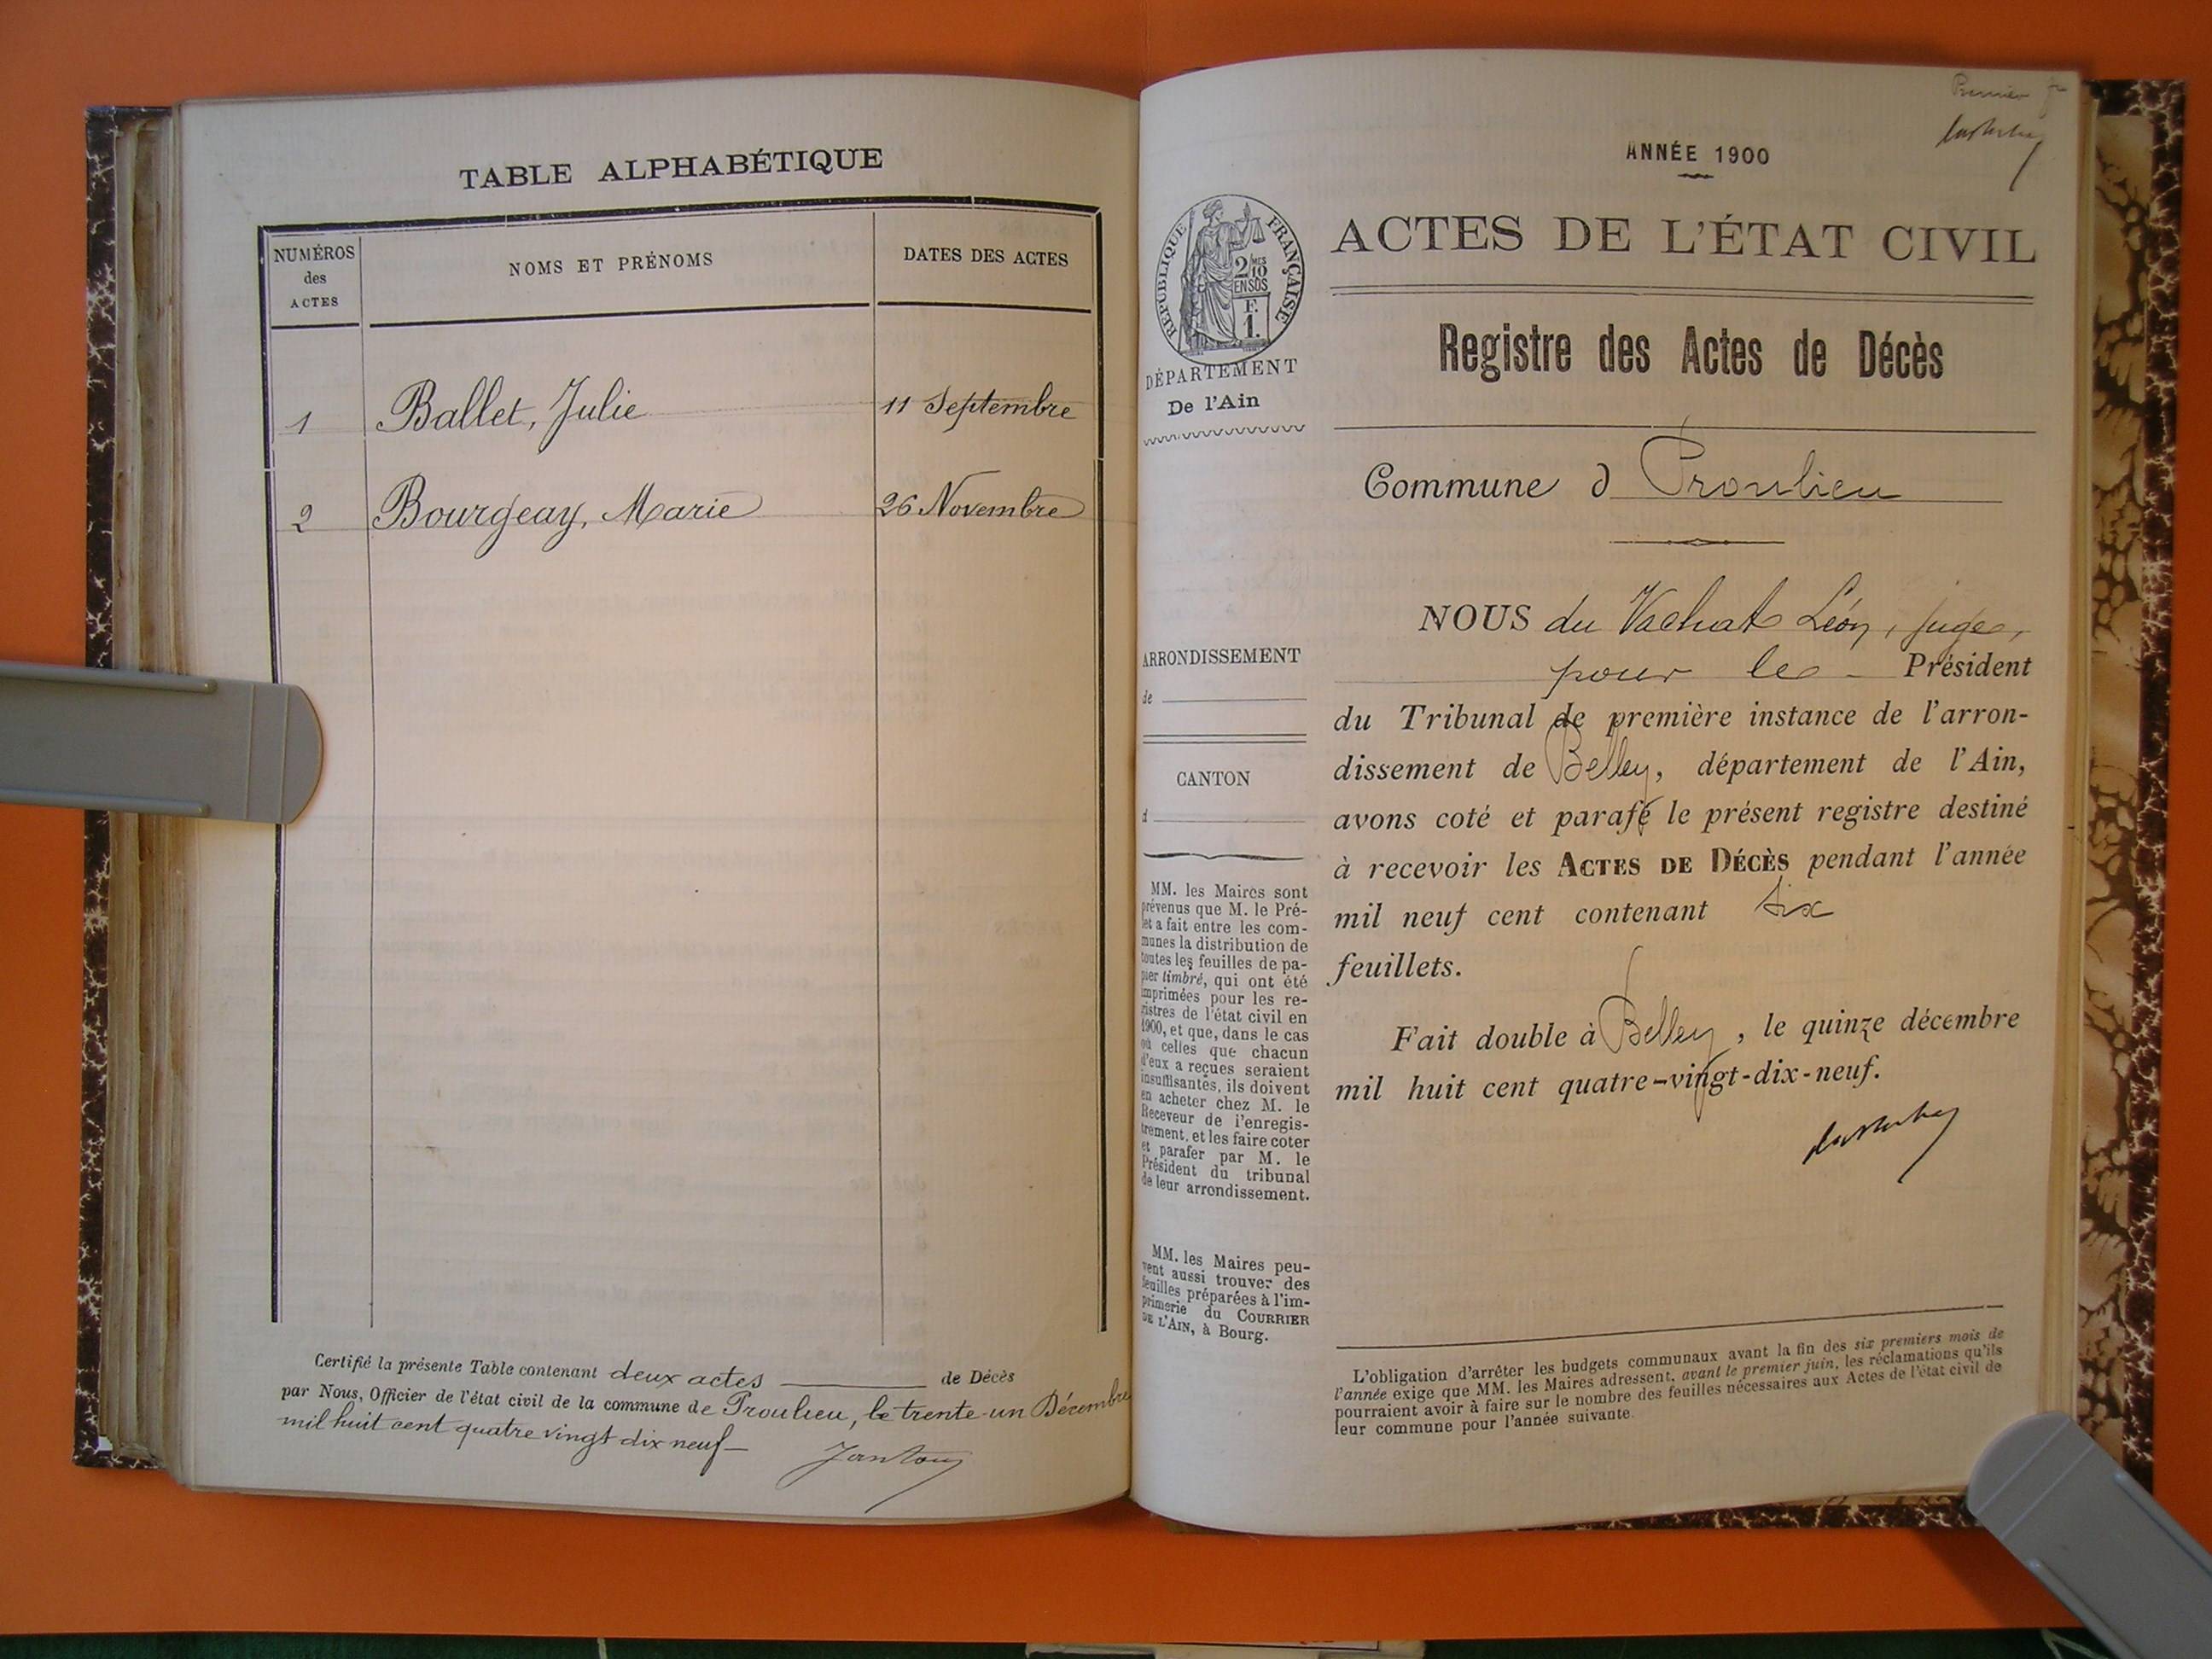 TABLE ALPHABÉTIQUE
NUMÉROS
des
ACTES
NOMS ET PRÉNOMS
DATES DES ACTES
1 Ballet, Julie 11 Septembre
2 Bourgeay, Marie 26 Novembre
Certifié la présente Table contenant deux actes de Décès
par Nous, Officier de l'état civil de la commune de Proulieu, le trente-un Décembre
mil huit cent quatre vingt dix neuf
Premier
ANNÉE 1900
ACTES DE L'ÉTAT CIVIL
RÉPUBLIQUE FRANÇAISE
2/10 MES
EN SUS
F.
1.
DÉPARTEMENT
De l'Ain
Registre des Actes de Décès
Commune d Proulieu
NOUS du Vachat Léon, juge,
pour le Président
du Tribunal de première instance de l'arron-
dissement de Belley, département de l'Ain,
avons coté et parafé le présent registre destiné
à recevoir les ACTES DE DÉCÈS pendant l'année
mil neuf cent contenant six
feuillets.
Fait double à Belley, le quinze décembre
mil huit cent quatre-vingt-dix-neuf.
ARRONDISSEMENT
de
CANTON
d
MM. les Maires sont
prévenus que M. le Pré-
fet a fait entre les com-
munes la distribution de
toutes les feuilles de pa-
pier timbré, qui ont été
imprimées pour les re-
gistres de l'état civil en
1900, et que, dans le cas
où celles que chacun
d'eux a reçues seraient
insuffisantes, ils doivent
en acheter chez M. le
Receveur de l'enregis-
trement, et les faire coter
et parafer par M. le
Président du tribunal
de leur arrondissement.
MM. les Maires peu-
vent aussi trouver des
feuilles préparées à l'im-
primerie du COURRIER
DE L'AIN, à Bourg.
L'obligation d'arrêter les budgets communaux avant la fin des six premiers mois de
l'année exige que MM. les Maires adressent, avant le premier juin, les réclamations qu'ils
pourraient avoir à faire sur le nombre des feuilles nécessaires aux Actes de l'état civil de
leur commune pour l'année suivante.